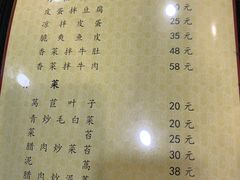 皮蛋拌豆腐 20元
凉拌皮蛋 25元
脆爽鱼皮 35元
香菜拌牛肚 48元
香菜拌牛肉 58元
菜
莴苣叶子 20元
青炒毛白菜 20元
菜苔 25元
腊肉炒菜苔 30元
泥蒿 38元
腊肉炒泥蒿